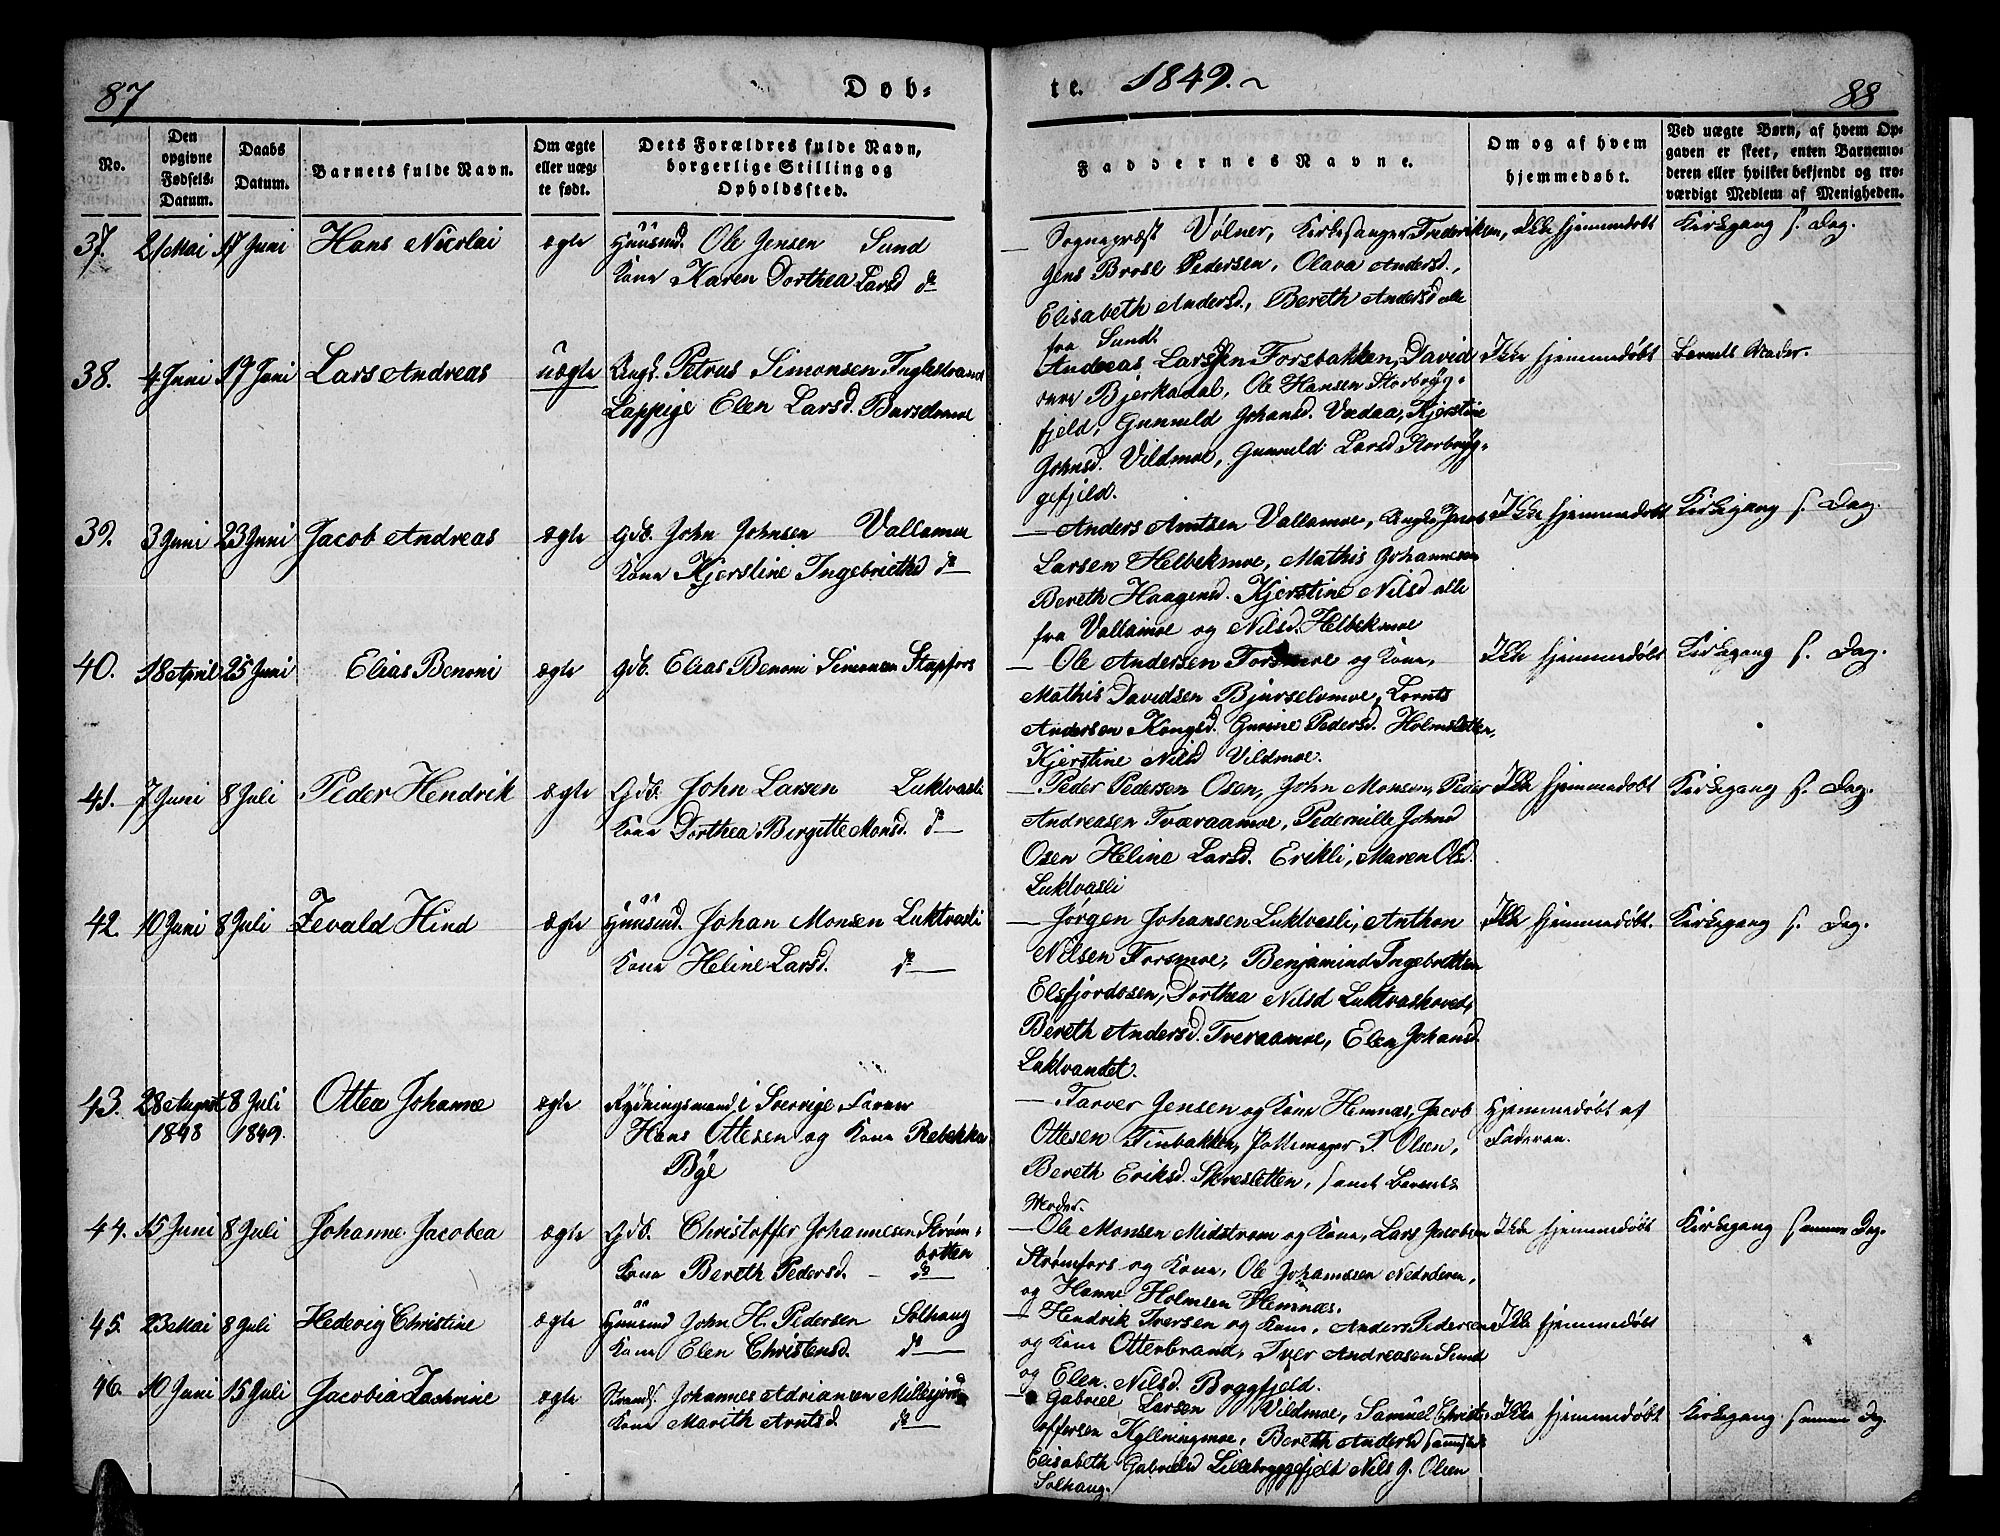 87
Døb-
te.
1849.
88
No.
Den opgivne Fødsels-Datum.
Daabs Datum.
Barnets fulde Navn.
Om ægte eller uægte født.
Dets Forældres fulde Navn, borgerlige Stilling og Opholdssted.
Faddernes Navne.
Om og af hvem hjemmedøbt.
Ved uægte Børn, af hvem Opgaven er skeet, enten Barnemoderen eller hvilket bekjendt og troværdigt Medlem af Menigheden.
37. 21 Mai 17 Juni Hans Nicolai ægte Huusmd. Ole Jensen Sund
Kone Karen Dorthea Larsd do
Sognepræst Vølner, Kirkesanger Frederiksen,
Jens Brose Pedersen, Olava Andersd.,
Elisabeth Andersd., Bereth Andersd alle
fra Sund.
Ikke hjemmedøbt
Kirkegang s. Dag.
38. 4 Juni 17 Juni Lars Andreas uægte Ungk. Petrus Simonsen Inglestrand
Lappige Elen Larsd.
Andreas Larssen Forsbakken, David
Bjerkadal, Ole Hansen Storbryg-
fjeld, Gunneld Johansd. Vædaa, Kjerstine
Johnsd. Vildmoe, Gunneld Larsd Storbryg-
gefjeld.
Ikke hjemmedøbt
Barnets Moder.
39. 3 Juni 23 Juni Jacob Andreas ægte Gdb. John Johnsen Vallamoe
Kone Kjerstine Ingebriethsd do
Anders Arntsen Vallamoe,
Larsen Helbekmoe, Mathis Johannesen
Bereth Haagensd. Kjerstine Nilsd alle
fra Vallamoe og Nilsd. Helbekmoe
Ikke hjemmedøbt
Kirkegang s. Dag.
40. 18 April 25 Juni Elias Benoni ægte Gdb. Elias Benoni Simonsen Stapfors
Ole Andersen Forsmoe og Kone,
Mathis Davidsen Bjurselvmoe, Lornts
Andersen Kongsd. Gurine Pedersd. Holmsletten,
Kjerstine Nilsd Vildmoe.
Ikke hjemmedøbt
Kirkegang s. Dag.
41. 7 Juni 8 Juli Peder Hendrik ægte Gdb. John Larsen Luktvasli
Kone Dorthea Birgitte Monsd. do
Peder Pedersen Osen, John Monsen, Peder
Andreasen Tværaamoe, Pedernille Johnsd
Osen Heline Larsd. Erikli, Maren Olsd.
Luktvasli
Ikke hjemmedøbt
Kirkegang s. Dag.
42. 10 Juni 8 Juli Zevald Hind ægte Huusmd. Johan Monsen Luktvasli
Kone Heline Larsd. do
Jørgen Johansen Luktvasli, Anthon
Nilsen Forsmoe, Benjamind Ingebretsen
Elsfjordosen, Dorthea Nilsd Luktvashoved,
Bereth Andersd. Tveraamoe, Elen Johansd.
Luktvandet.
Ikke hjemmedøbt.
Kirkegang s. Dag.
43. 28 August 1848 8 Juli 1849. Ottea Johanne ægte Rydningsmand i Sverrige
Hans Ottesen og Kone Rebekka
Bye
Tarver Jensen og Kone Hemnæs, Jacob
Ottesen Tinbakken, Pottemager P. Olsen,
Bereth Eriksd. Skresletten, samt Barnets
Moder.
Hjemmedøbt af
Faderen.
44. 15 Juni 8 Juli Johanne Jacobea ægte Gdb. Christoffer Johannesen Strøm-
botten
Kone Bereth Pedersd. do
Ole Monsen Midstrøm og Kone, Lars Jacobsen
Strømfors og Kone, Ole Johannssen Nedrleren,
og Hanne Holmsen Hemnæs.
Ikke hjemmedøbt
Kirkegang samme Dag.
45. 23 Mai 8 Juli Hedevig Christine ægte Huusmd John H. Pedersen Solhaug
Kone Elen Christensd. do
Hendrik Iversen og Kone, Anders Pedersen
og Kone Otterbrand, Iver Andreasen Sund
og Elen Nilsd. Bryggfjeld.
Ikke hjemmedøbt
46. 10 Juni 15 Juli Jacobia Zachrine ægte Strands. Johannes Adriansen
Kone Mareth Arntsd. do
Gabriel Larsen Vildmoe, Samuel Christ-
offersen Kyllningmoe, Bereth Andersd
Elisabeth Gabrielsd Lillebryggefjeld Nils J. Olsen
Solhaug.
Ikke hjemmedøbt
Kirkegang samme Dag.